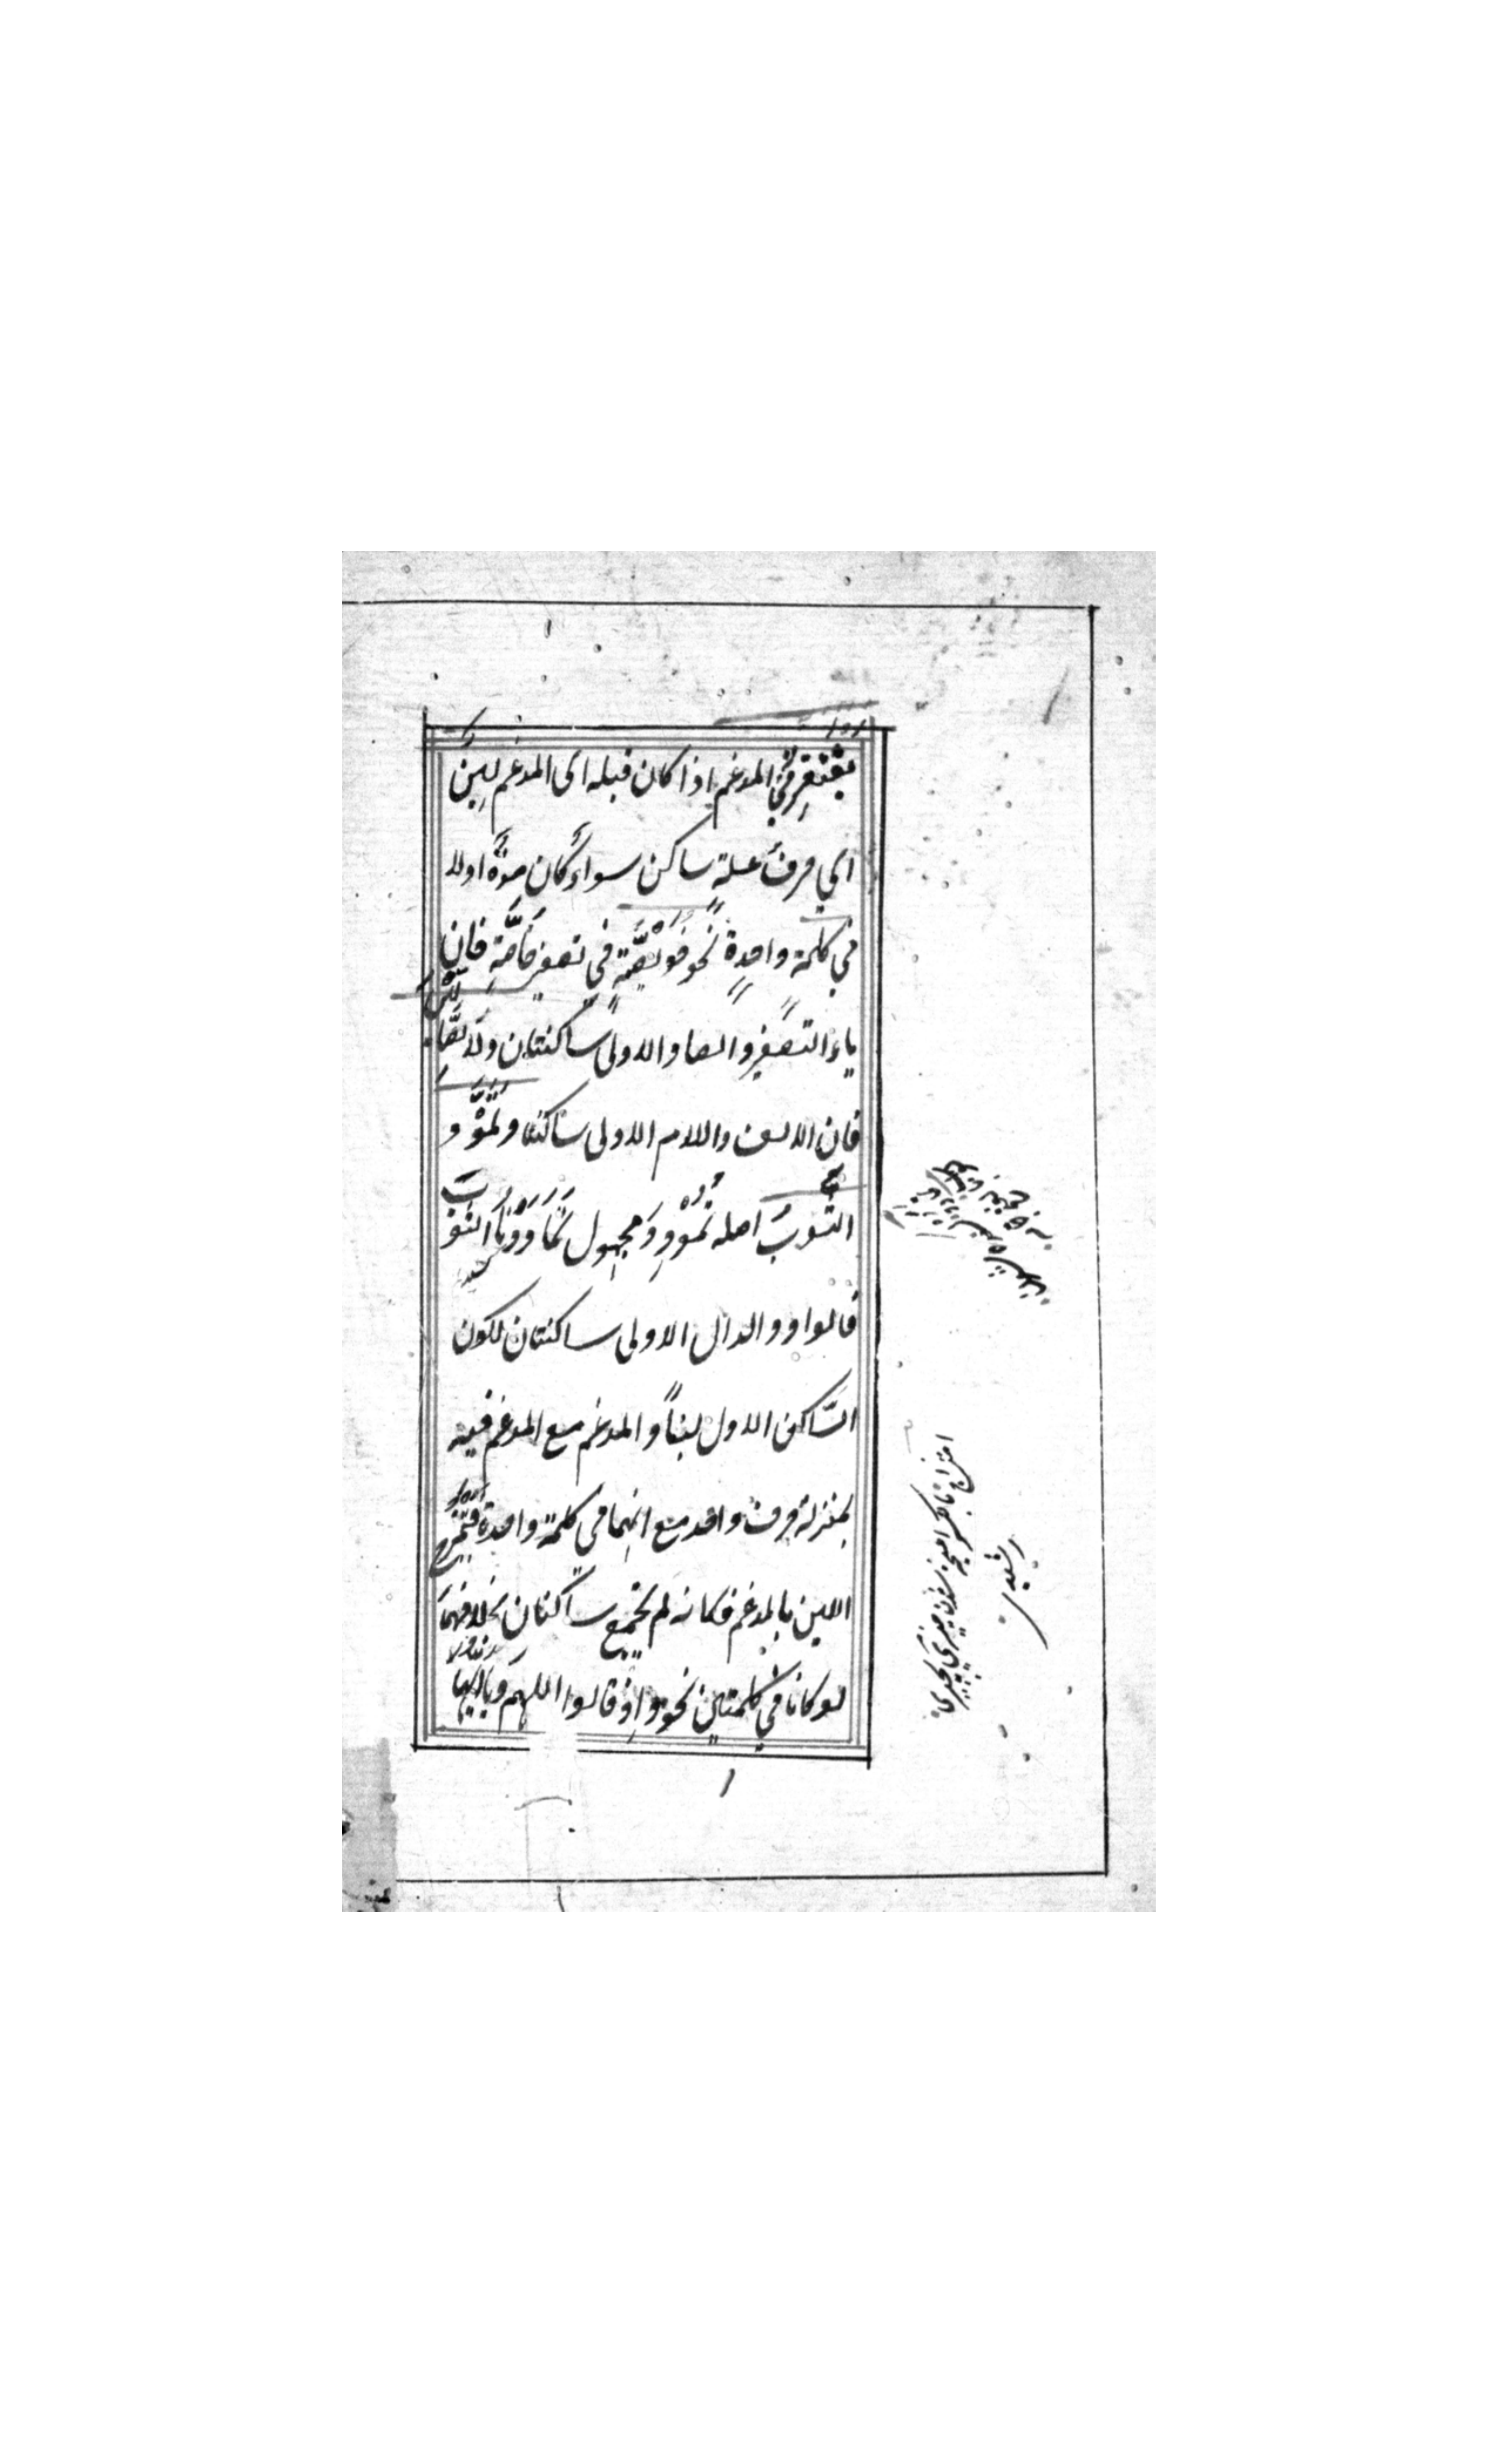 يغتفر في المدغم اذا كان قبله اى المدغم لين
اي حرف علة ساكن سواء كان مدّة اولا
في كلمة واحدة نحو خُوَيْصَّة في تصغير خاصّة فان
ياء التصغير والصاد الاولى ساكنتان ولا الضّالين
فان الالف واللام الاولى ساكنتا وتُمُوْدَّ
الثوبُ اصله تُمُوْدِدَ مجهول تَمَادَدْنَا الثوبَ
فالواو والدال الاولى ساكنتان لكون
السّاكن الاول لينًا والمدغم مع المدغم فيه
بمنزلة حرف واحد مع انهما في كلمة واحدة فيمتزج
اللين بالمدغم فكانه لم يجتمع ساكنان بخلافهما
لو كانا في كلمتين نحو واذ قالوا اللهم ويا ايها
امتزاج بالكسر آميخته شدن چيزى بچيزى
رشيدى